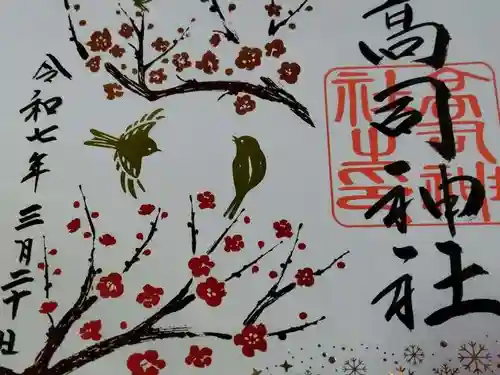 高司神社
令和七年三月二十日